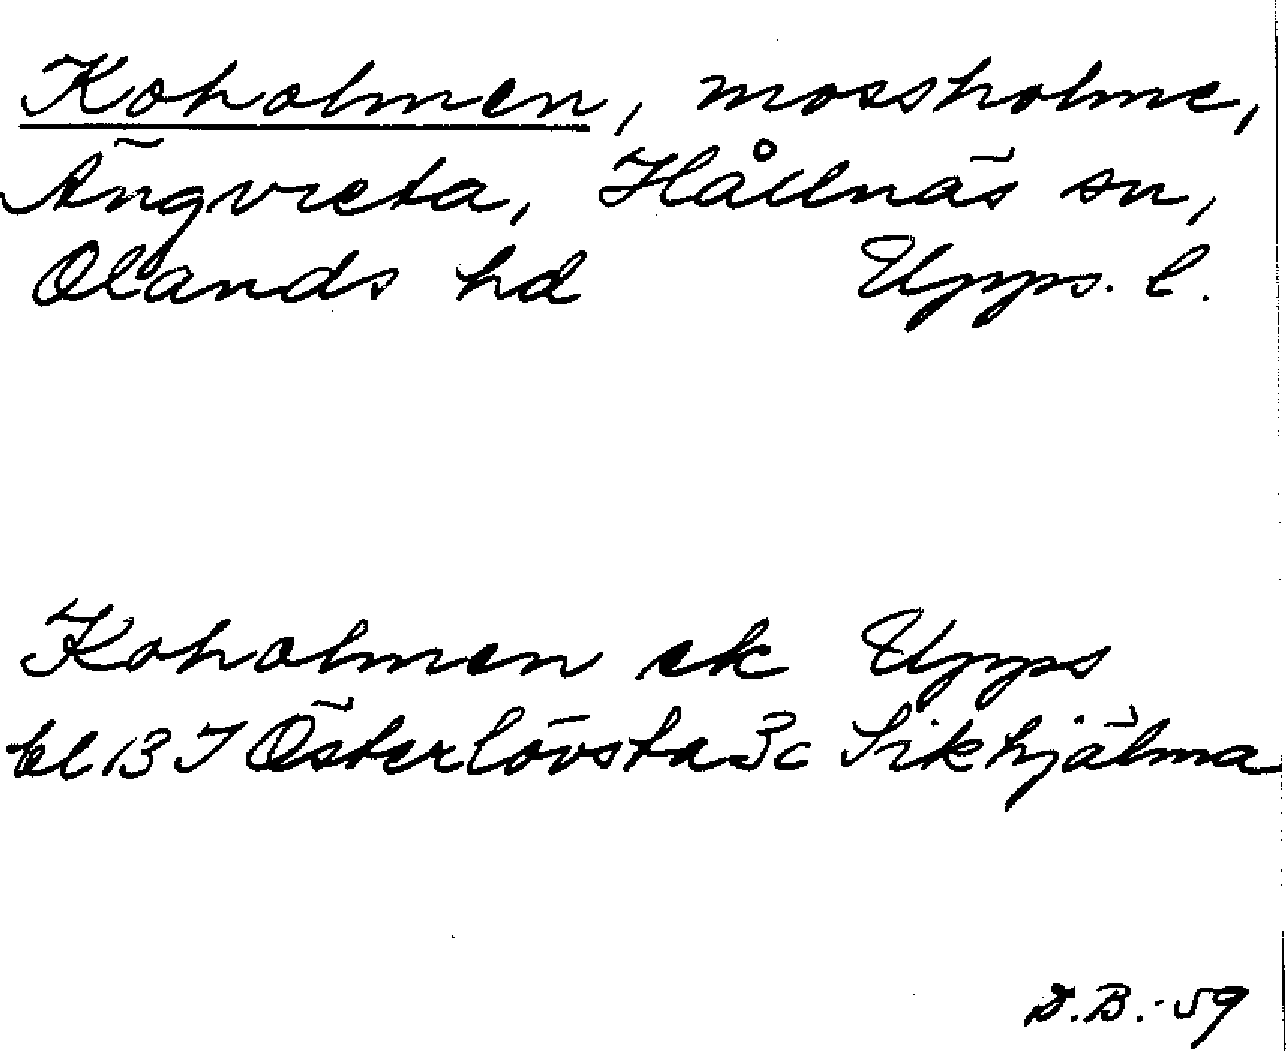 Koholmen, mossholme,
Ängvreta, Hållnäs sn,
Olands hd Upps. l.
Koholmen ek Upps
bl 13 I Österlövsta 3c Sikhjälma
D.B.-59